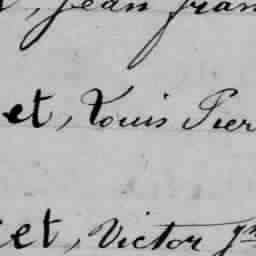 , Jean Fran
et, Louis Pier
et, Victor Jn